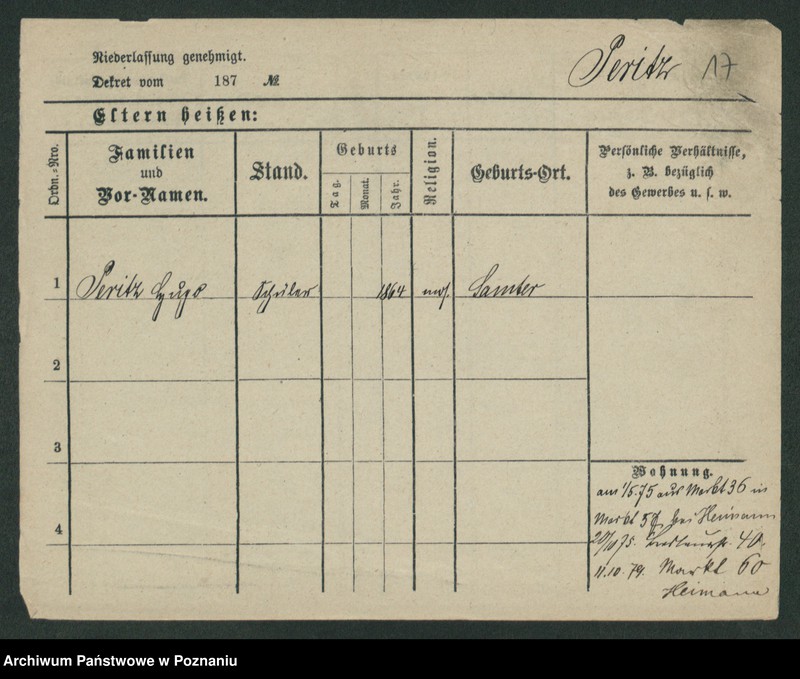 Niederlassung genehmigt.
Dekret vom 187 №
Peritz 17
Eltern heißen:
Ordn.-Nro.
Familien
und
Vor-Namen.
Stand.
Geburts
Tag.
Monat.
Jahr.
Religion.
Geburts-Ort.
Persönliche Verhältnisse,
z. B. bezüglich
des Gewerbes u. s. w.
1 Peritz Hugo Schüler 1864 mos. Samter
2
3
4
Wohnung.
am 1/5 75 aus Markt 36 in
Markt bei Heimann
75. 40.
11.10.79. Markt 60
Heimann
Archiwum Państwowe w Poznaniu